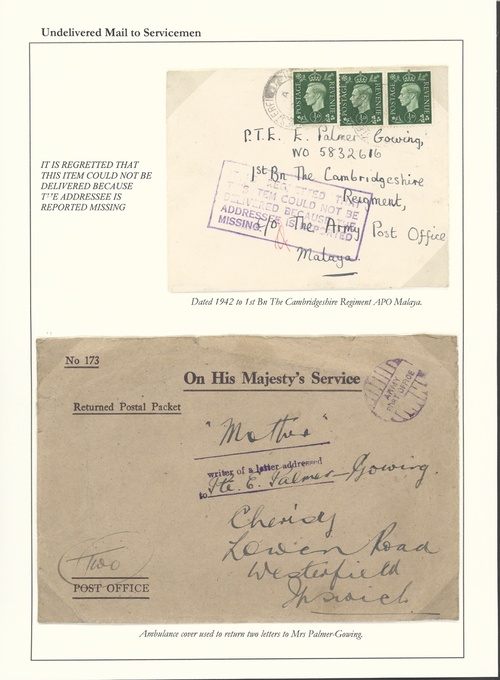 Undelivered Mail to Servicemen
IT IS REGRETTED THAT
THIS ITEM COULD NOT BE
DELIVERED BECAUSE
THE ADDRESSEE IS
REPORTED MISSING
POSTAGE REVENUE
POSTAGE REVENUE
POSTAGE REVENUE
P.T.E. E. Palmer Gowing,
NO 5832616
1st Bn The Cambridgeshire
Regiment,
c/o The Army Post Office
Malaya.
REGRETTED THAT
THIS ITEM COULD NOT BE
DELIVERED BECAUSE THE
ADDRESSEE IS REPORTED
MISSING
Dated 1942 to 1st Bn The Cambridgeshire Regiment APO Malaya.
No 173
On His Majesty's Service
ARMY
POST OFFICE
Returned Postal Packet
"Mother"
writer of a letter addressed
to Pte. E. Palmer-Gowing.
Cherisy
Lower Road
Westerfield
Ipswich
Two
POST OFFICE
Ambulance cover used to return two letters to Mrs Palmer-Gowing.